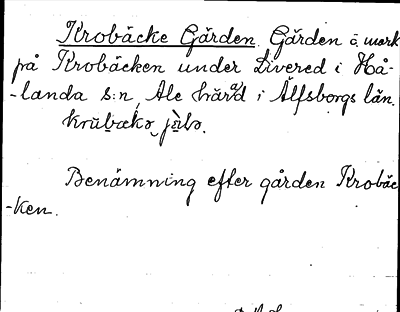 Krobäcke Gärden. Gärden å mark
på Krobäcken under Livered i Hå-
-landa s:n, Ale härad i Älfsborgs län.
Benämning efter gården Krobäc
-ken.